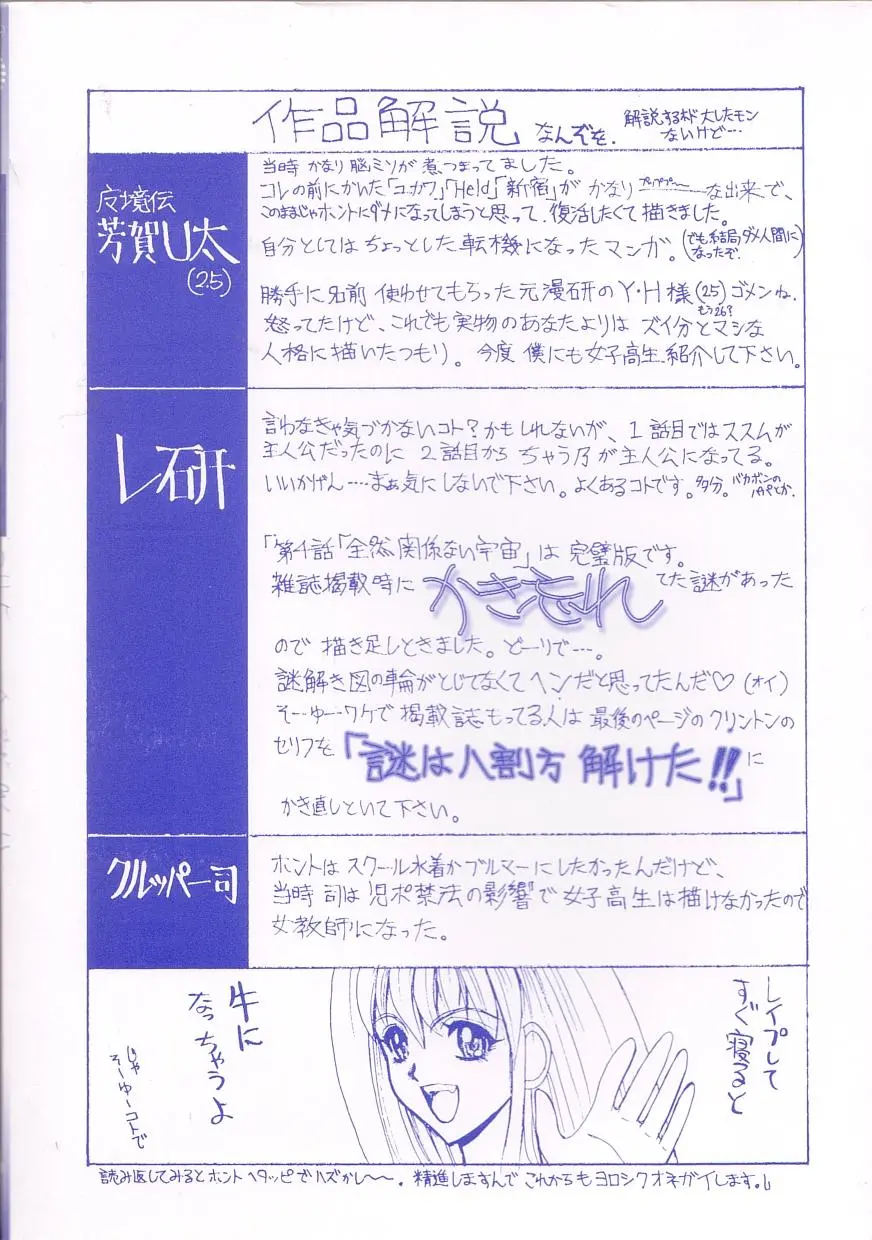 作品解説 なんぞを。
解説するホド大したモン
ないけど…
反境伝
芳賀U太
(25)
当時 かなり脳ミソが煮つまってました。
コレの前にかいた「ユカワ」「Held」「新宿」が かなり な出来で、
このままじゃホントにダメになってしまうと思って、復活したくて描きました。
自分としてはちょっとした転機になったマンガ。(でも結局ダメ人間に
なったぞ。)
勝手に名前 使わせてもらった元漫研のY・H様(25)ゴメンね。
もう26?
怒ってたけど、これでも実物のあなたよりは ズイ分とマシな
人格に描いたつもり。今度 僕にも女子高生 紹介して下さい。
レ研
言わなきゃ気づかないコト?かもしれないが、1話目ではススムが
主人公だったのに 2話目から ちゃう乃が主人公になってる。
いいかげん……まぁ気にしないで下さい。よくあるコトです。多分。バカボンの
パパとか。
「第4話「全然関係ない宇宙」は 完璧版です。
雑誌掲載時に かき忘れ てた謎があった
ので 描き足しときました。どーりで…。
謎解き図の輪がとじてなくてヘンだと思ってたんだ♡(オイ)
そーゆーワケで 掲載誌もってる人は 最後のページのクリントンの
セリフを「謎は八割方 解けた!!」に
かき直しといて下さい。
クルッパー司
ホントは スクール水着かブルマーにしたかったんだけど、
当時 司は「児ポ禁法の影響」で 女子高生は描けなかったので
女教師になった。
レイプして
すぐ寝ると
牛に
なっちゃうよ
じゃ
そーゆーコトで
読み返してみるとホント ヘタッピでハズかし〜〜。精進しますんで これからもヨロシクオネガイします。